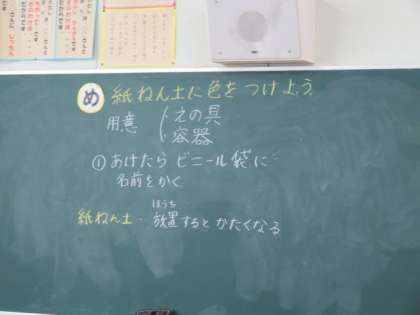 め 紙ねん土に色をつけよう
用意 えの具
容器
①あけたら ビニール袋に
名前をかく
ほうち
紙ねん土・放置するとかたくなる